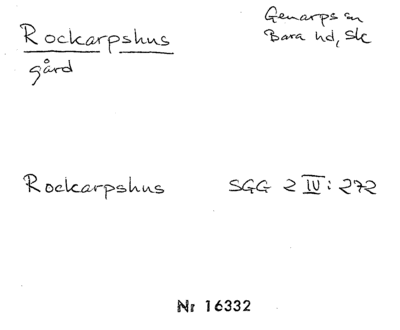 Rockarpshus
Genarps sn
gård
Bara hd, Sk
Rockarpshus SGG 2 IV: 272
Nr 16332